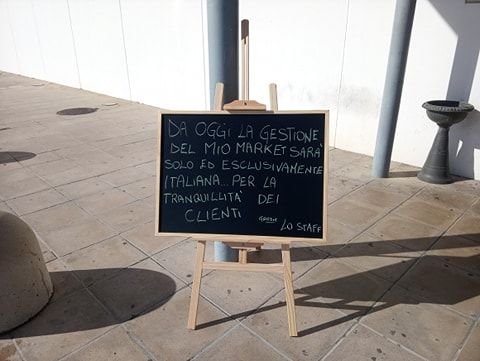 DA OGGI LA GESTIONE
DEL MIO MARKET SARA'
SOLO ED ESCLUSIVAMENTE
ITALIANA... PER LA
TRANQUILLITA' DEI
CLIENTI GRAZIE
LO STAFF